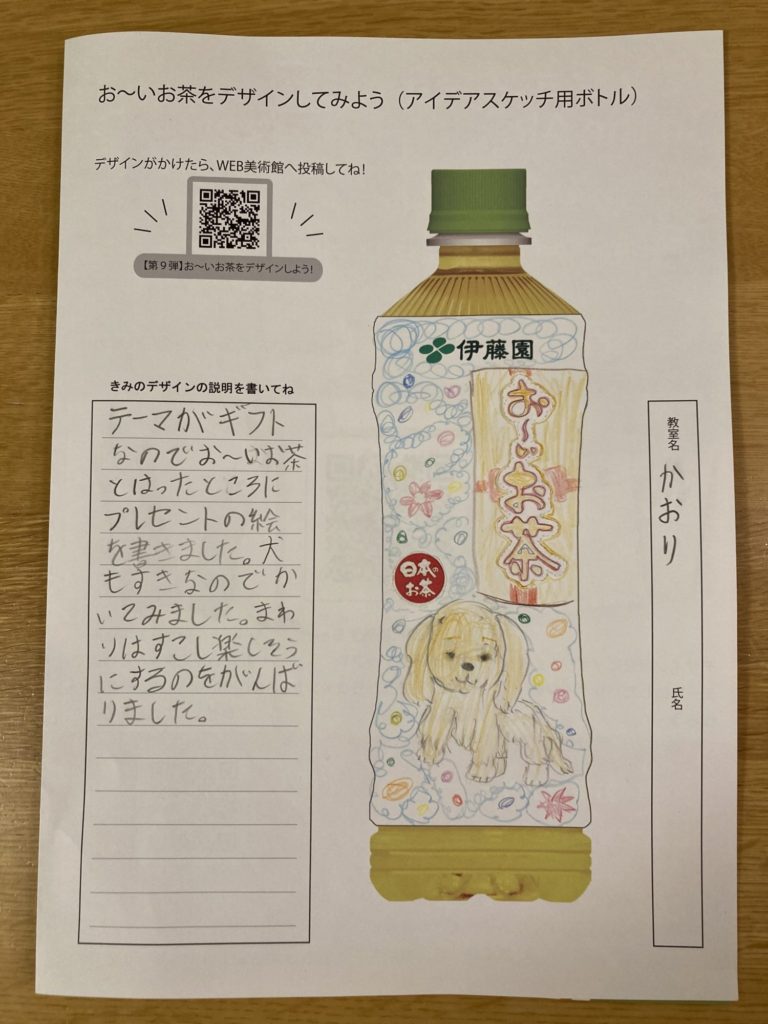 お～いお茶をデザインしてみよう（アイデアスケッチ用ボトル）
デザインがかけたら、WEB美術館へ投稿してね!
【第９弾】お～いお茶をデザインしよう!
きみのデザインの説明を書いてね
テーマがギフト
なのでお～いお茶
とはったところに
プレゼントの絵
を書きました。犬
もすきなのでか
いてみました。まわ
りはすこし楽しそう
にするのをがんば
りました。
伊藤園
お～いお茶
日本の
お茶
教室名
かおり
氏名